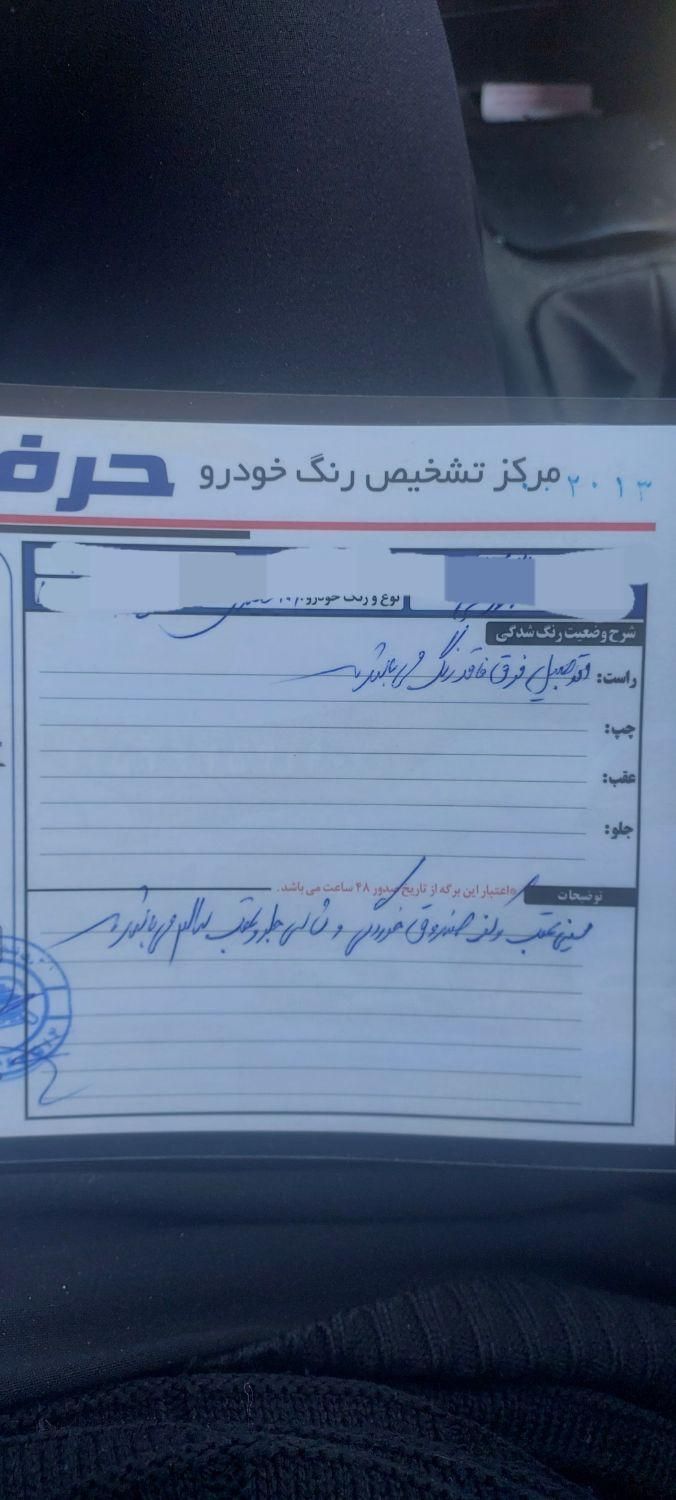 مرکز تشخیص رنگ خودرو حرفه
۲۰۱۳
نوع و رنگ خودرو:
شرح وضعیت رنگ شدگی
راست: فوق فاقد رنگ می باشد
چپ:
عقب:
جلو:
توضیحات
*اعتبار این برگه از تاریخ صدور ۴۸ ساعت می باشد.
سینی عقب صندوق خوردگی و شاسی جلو و عقب سالم می باشد